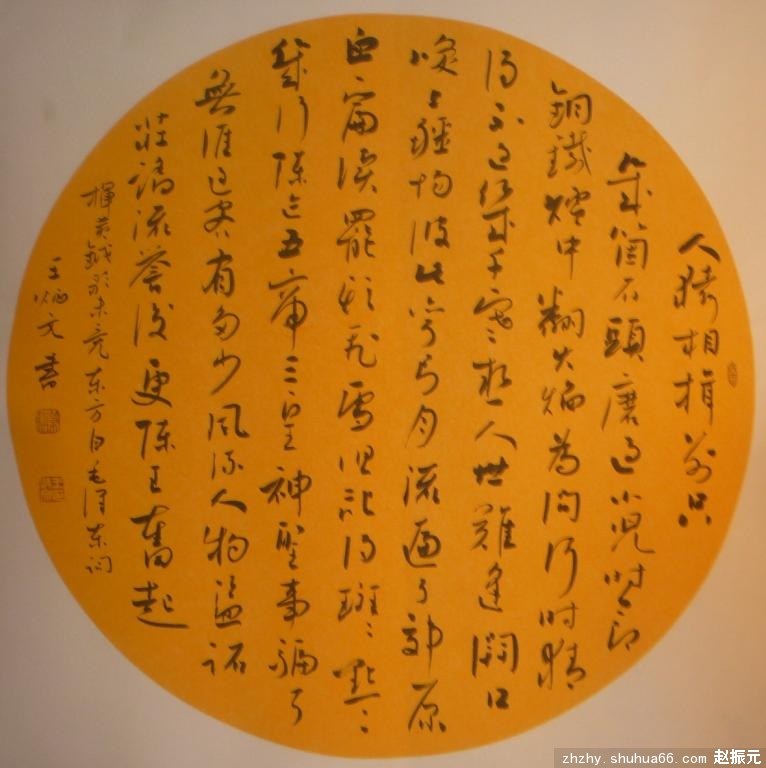 人猿相揖别只
幾箇石頭磨过小児时节
銅鐵炉中翻火焰为问何时猜
得不过幾千寒热人世難逢開口
笑上疆场彼此弯弓月流遍了郊原
血一篇读罷头飞雪但记得斑〻點〻
幾行陈迹五帝三皇神聖事骗了
無涯过客有多少风流人物盗跖
莊蹻流誉後更陈王奮起
揮黄钺歌未竟东方白毛泽东词
王炳文書
zhzhy.shuhua66.com 赵振元